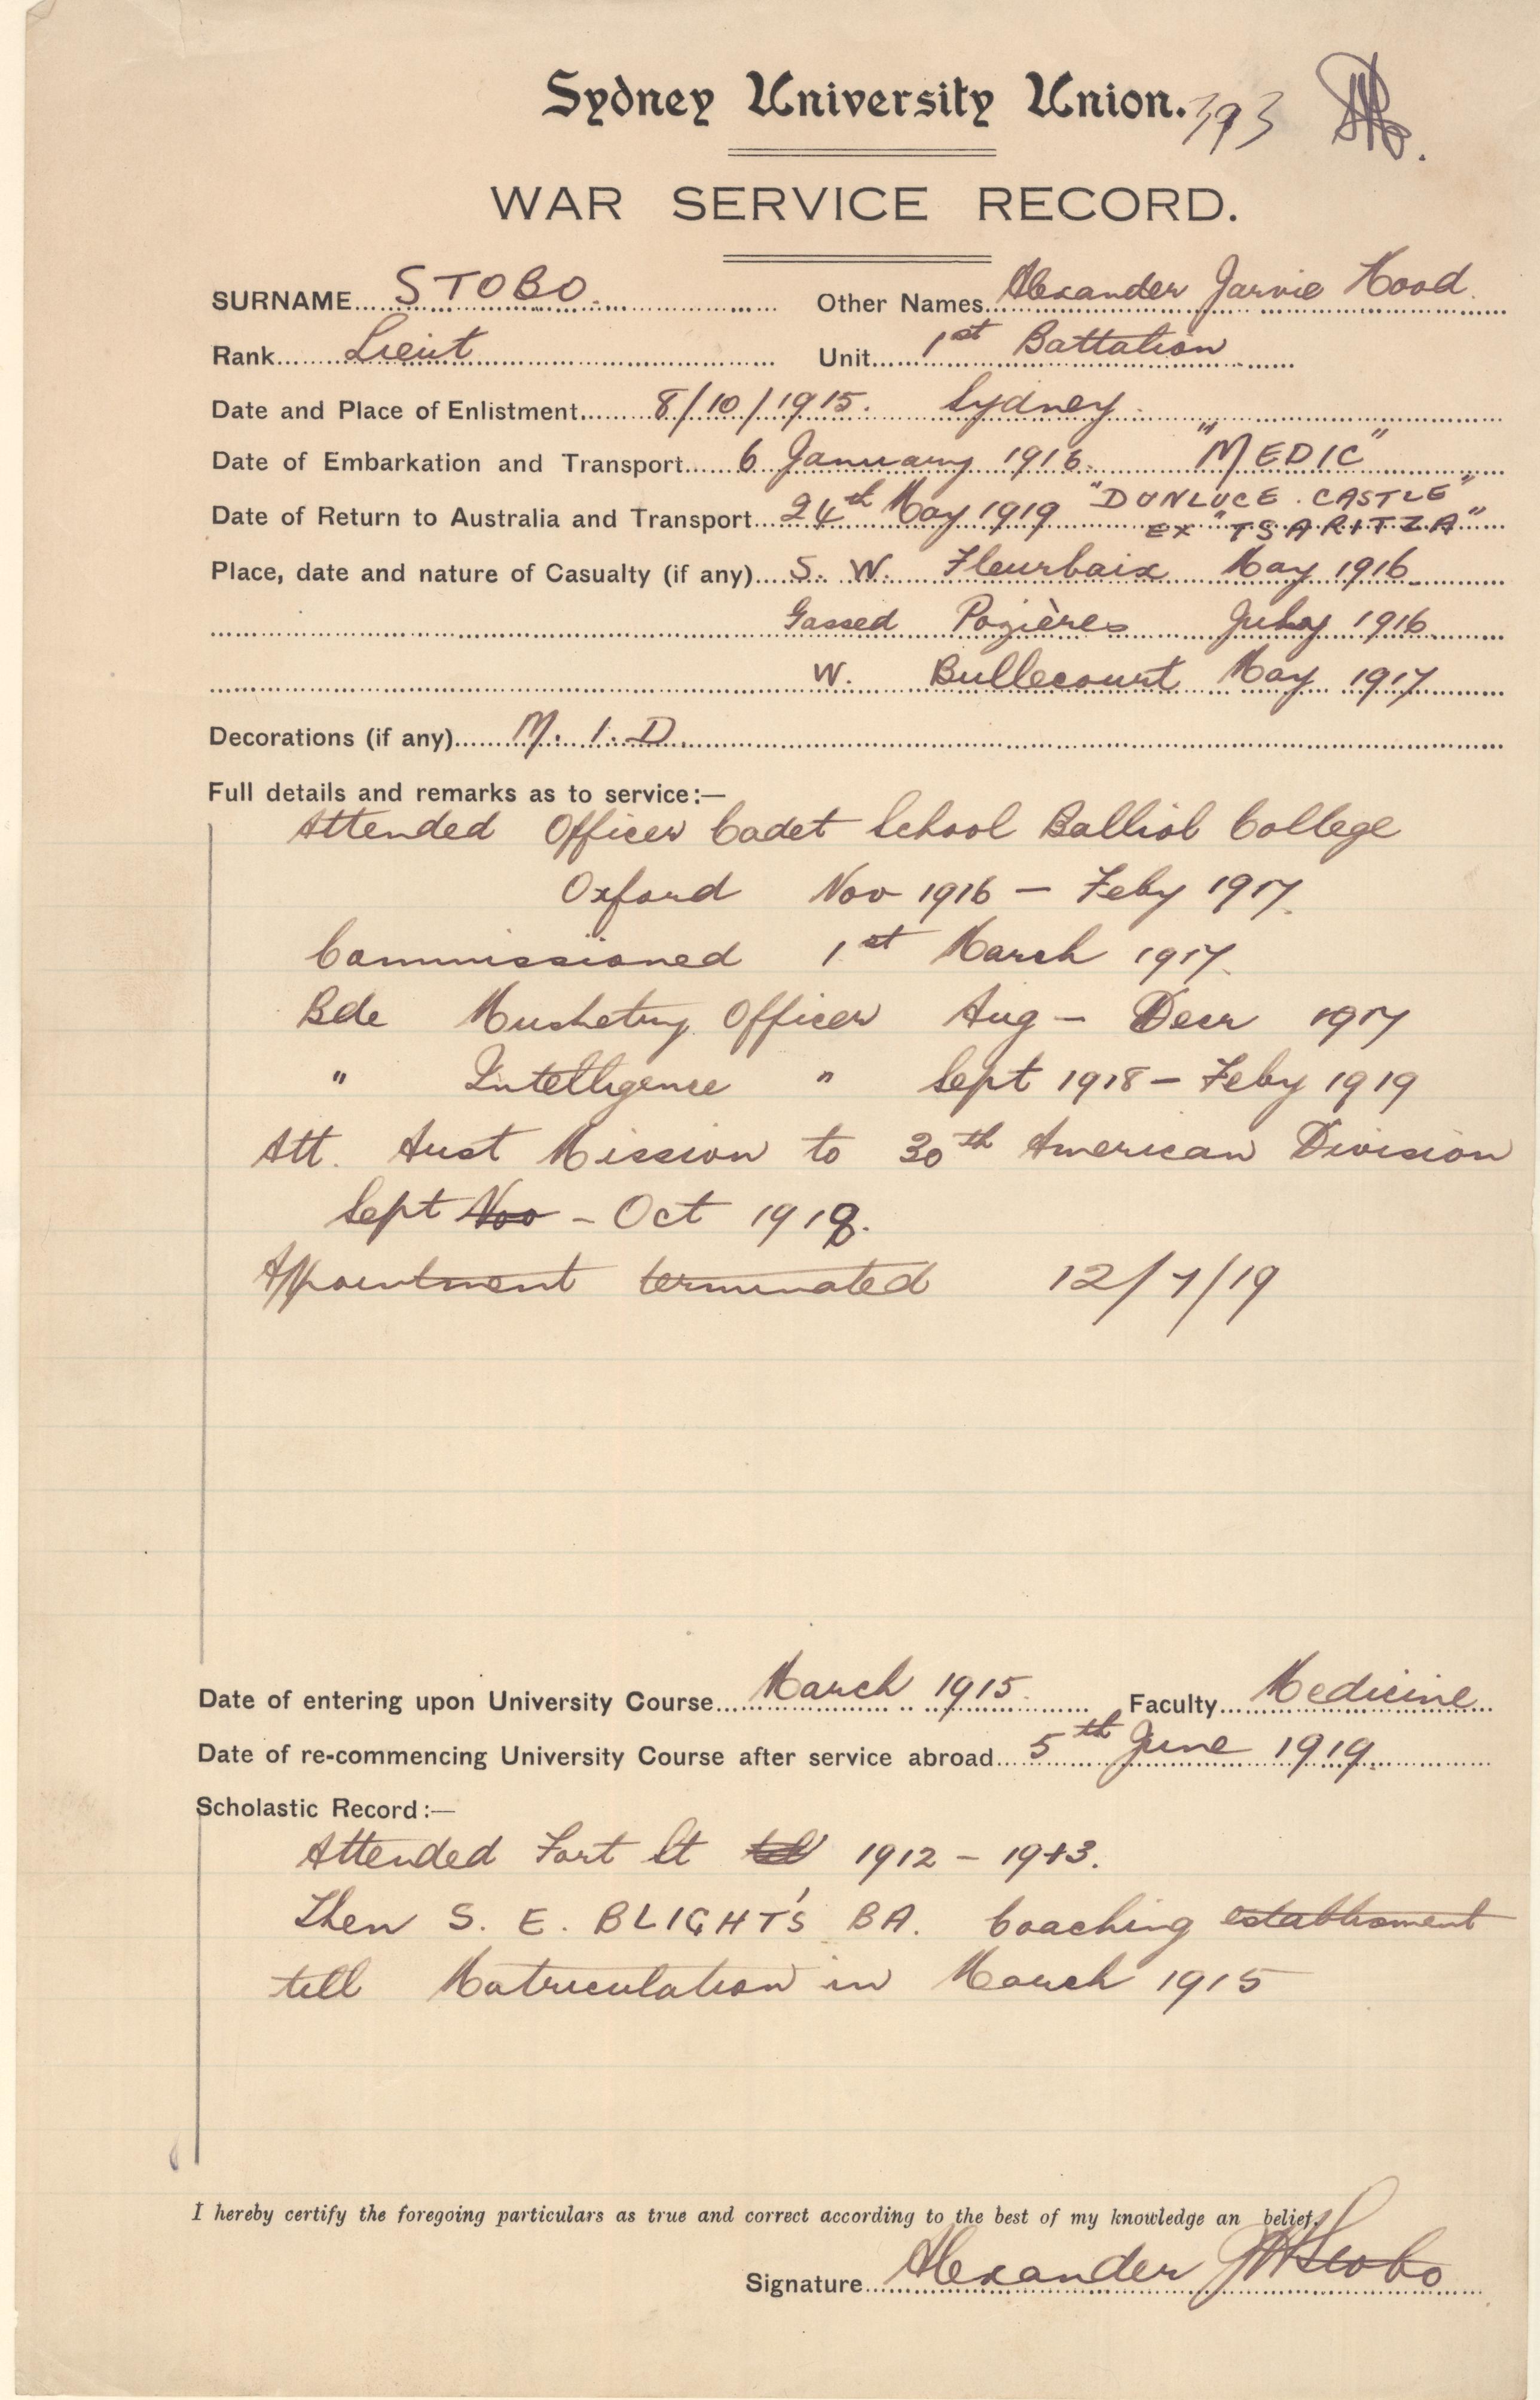 Sydney University Union. 393
WAR SERVICE RECORD.
SURNAME STOBO. Other Names Alexander Jarvie Hood.
Rank Lieut Unit 1st Battalion
Date and Place of Enlistment 8/10/1915. Sydney.
Date of Embarkation and Transport 6 January 1916. "MEDIC"
Date of Return to Australia and Transport 24th May 1919 "DUNLUCE CASTLE"
EX "TSARITZA"
Place, date and nature of Casualty (if any) S. W. Fleurbaix May 1916
Gassed Pozières July 1916
W. Bullecourt May 1917
Decorations (if any) M. I. D.
Full details and remarks as to service:—
Attended Officer Cadet School Balliol College
Oxford Nov 1916 — Feby 1917.
Commissioned 1st March 1917.
Bde Musketry Officer Aug — Decr 1917
" Intelligence " Sept 1918 — Feby 1919
Att. Aust Mission to 30th American Division
Sept Nov - Oct 1918.
Appointment terminated 12/7/19
Date of entering upon University Course March 1915. Faculty Medicine
Date of re-commencing University Course after service abroad 5th June 1919.
Scholastic Record:—
Attended Fort St 1912 - 1913.
Then S. E. BLIGHT'S BA. Coaching establisment
till Matriculation in March 1915
I hereby certify the foregoing particulars as true and correct according to the best of my knowledge an belief.
Signature Alexander JH Stobo